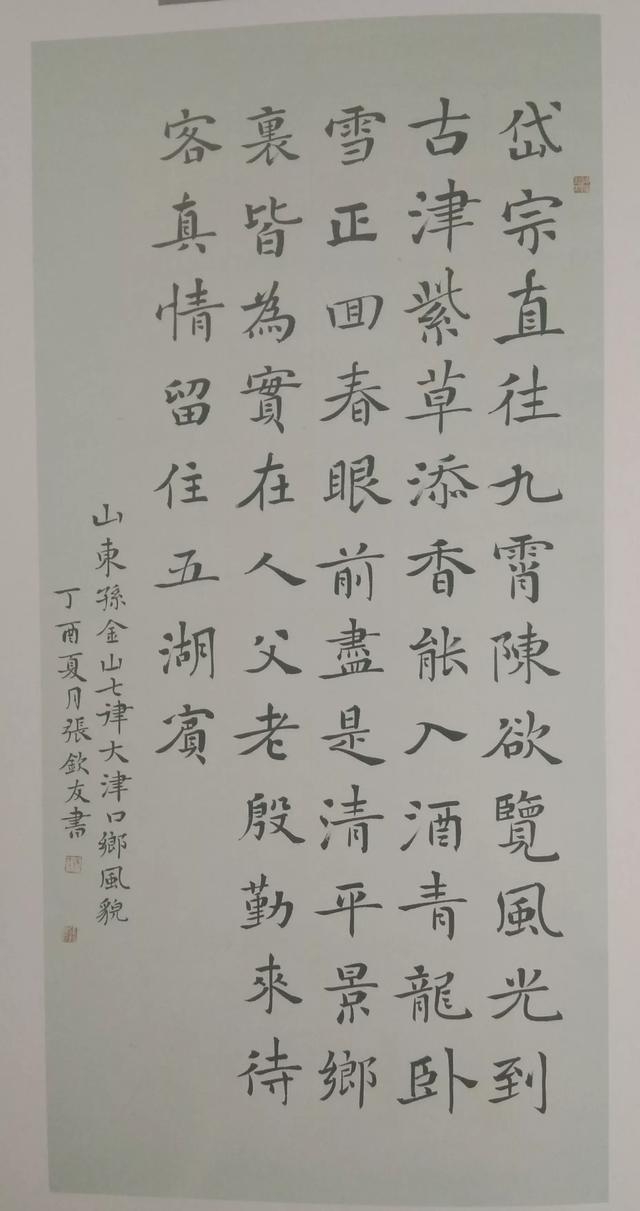 岱宗直往九霄陳欲覽風光到
古津紫草添香能入酒青龍卧
雪正囬春眼前盡是清平景鄉
裏皆為實在人父老殷勤來待
客真情留住五湖賓
山東孫金山七律大津口鄉風貌
丁酉夏月張欽友書